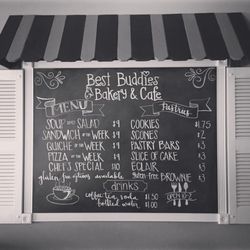 Best Buddies
Bakery & Cafe
MENU
Pastries
SOUP AND SALAD $9
COOKIES $1.75
SANDWICH of the WEEK $9
SCONES $2
QUICHE of the WEEK $9
PASTRY BARS $3
PIZZA of the WEEK $9
SLICE OF CAKE $3
CHEF'S SPECIAL $10
ECLAIR $3
gluten free options available
gluten-free BROWNIE $3
drinks
coffee, tea, soda $1.50
bottled water $1.00
OPEN 10-2